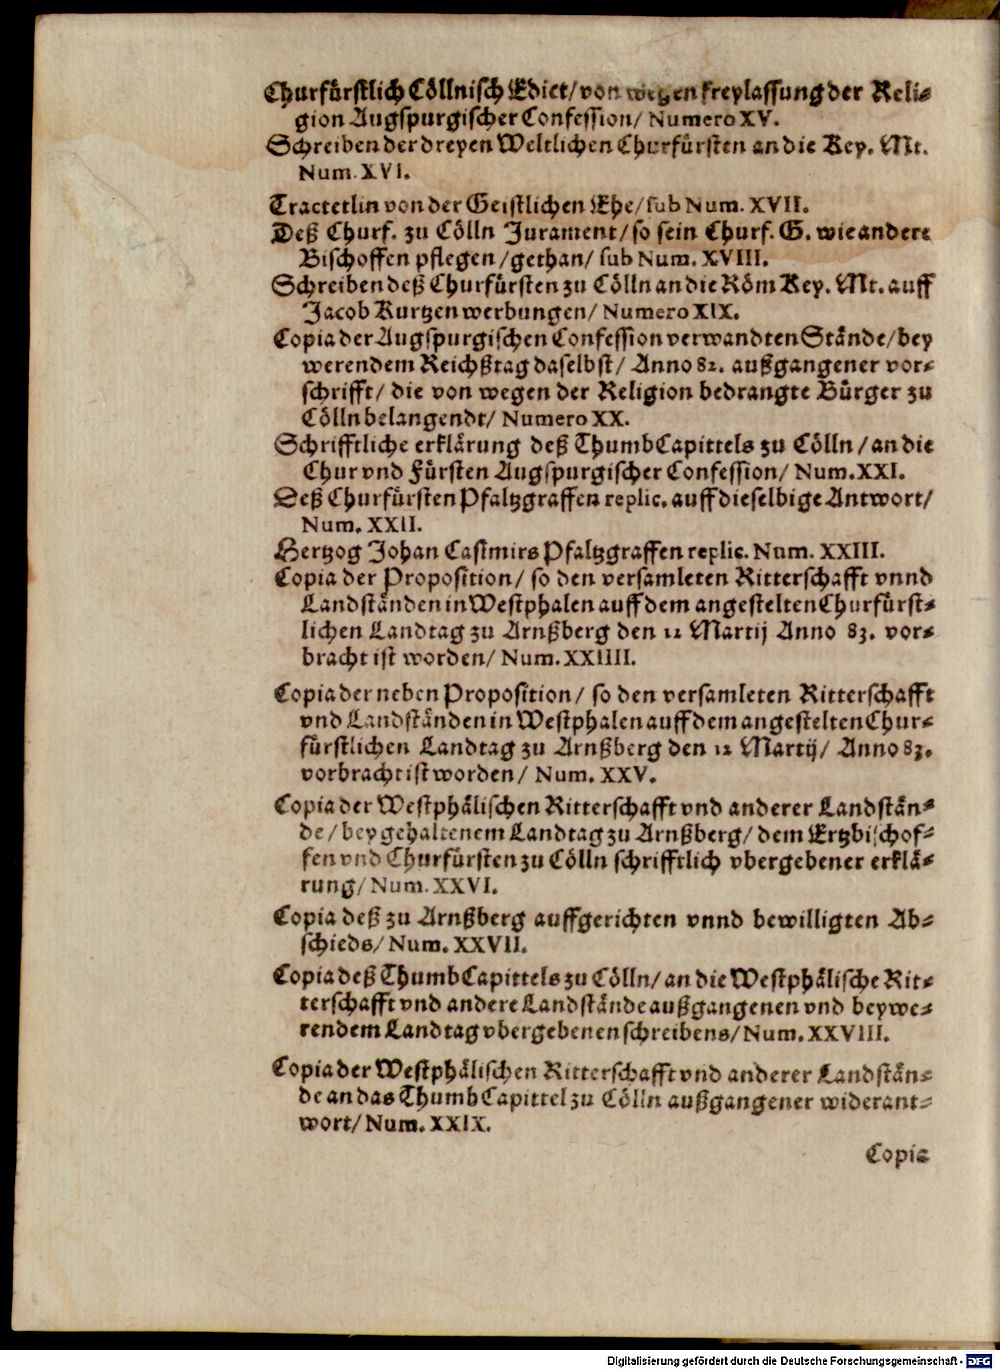 Churfürstlich Cöllnisch Edict/ von wegen freylassung der Reli-
gion Augspurgischer Confession/ Numero XV.
Schreiben der dreyen Weltlichen Churfürsten an die Key. Mt.
Num. XVI.
Tractetlin von der Geistlichen Ehe/ sub Num. XVII.
Deß Churf. zu Cölln Jurament/ so sein Churf. G. wie andere
Bischoffen pflegen/ gethan/ sub Num. XVIII.
Schreiben deß Churfürsten zu Cölln an die Röm Key. Mt. auff
Jacob Kurtzen werbungen/ Numero XIX.
Copia der Augspurgischen Confession verwandten Stände/ bey
werendem Reichßtag daselbst/ Anno 82. außgangener vor-
schrifft/ die von wegen der Religion bedrangte Bürger zu
Cölln belangendt/ Numero XX.
Schrifftliche erklärung deß ThumbCapittels zu Cölln/ an die
Chur vnd Fürsten Augspurgischer Confession/ Num. XXI.
Deß Churfürsten Pfaltzgraffen replic. auff dieselbige Antwort/
Num. XXII.
Hertzog Johan Casimirs Pfaltzgraffen replic. Num. XXIII.
Copia der Proposition/ so den versamleten Ritterschafft vnnd
Landständen in Westphalen auff dem angestelten Churfürst-
lichen Landtag zu Arnßberg den 12 Martij Anno 83. vor-
bracht ist worden/ Num. XXIIII.
Copia der neben Proposition/ so den versamleten Ritterschafft
vnd Landständen in Westphalen auff dem angestelten Chur-
fürstlichen Landtag zu Arnßberg den 12 Martij/ Anno 83.
vorbracht ist worden/ Num. XXV.
Copia der Westphälischen Ritterschafft vnd anderer Landstän-
de/ bey gehaltenem Landtag zu Arnßberg/ dem Ertzbischof-
fen vnd Churfürsten zu Cölln schrifftlich vbergebener erklä-
rung/ Num. XXVI.
Copia deß zu Arnßberg auffgerichten vnnd bewilligten Ab-
schieds/ Num. XXVII.
Copia deß ThumbCapittels zu Cölln/ an die Westphälische Rit-
terschafft vnd andere Landstände außgangenen vnd beywe-
rendem Landtag vbergebenen schreibens/ Num. XXVIII.
Copia der Westphälischen Ritterschafft vnd anderer Landstän-
de an das ThumbCapittel zu Cölln außgangener widerant-
wort/ Num. XXIX.
Copia
Digitalisierung gefördert durch die Deutsche Forschungsgemeinschaft - DFG